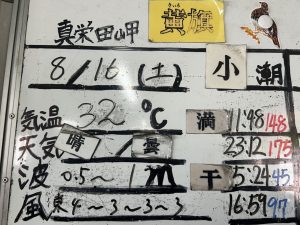 きいろ
真栄田岬 黄旗
8/16(土) 小潮
気温 32℃ 満 11:48 148
天気 晴/曇 23:12 175
波 0.5~1m 干 5:24 45
風 東4~3~3~3 16:59 97